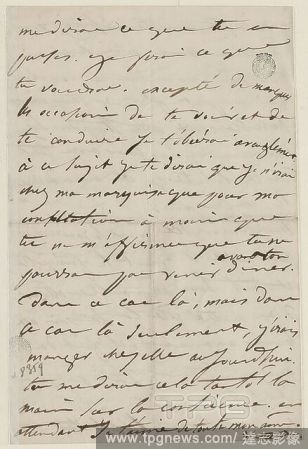 me diras ce que tu en
penses. je ferai ce que
tu voudras. excepté de manquer
les occasions de te voir et de
te conduire je t'obéirai aveuglément
à ce sujet je te dirai que je n'irai
chez ma marquise que pour ma
consultation à moins que
tu ne m'affirmes que tu ne
pourras pas venir avant ton dîner.
Dans ce cas là, mais dans
ce cas là seulement, j'irais
manger chez elle aujourd'hui
tu me diras cela tantôt la
main sur la conscience. en
attendant je t'aime de toute mon âme
8359
TPG
www.tpgnews.com / 達志影像